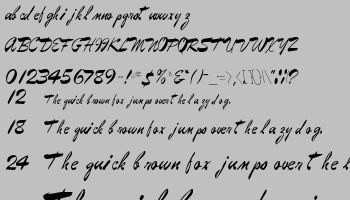 ab cd ef ghi jkl mno pqrst uvwxy z
ABCDEFGHIJKLMNOPQRSTUVWXYZ
0123456789
12 The quick brown fox jumps over the lazy dog.
18 The quick brown fox jumps over the lazy dog.
24 The quick brown fox jumps over the l